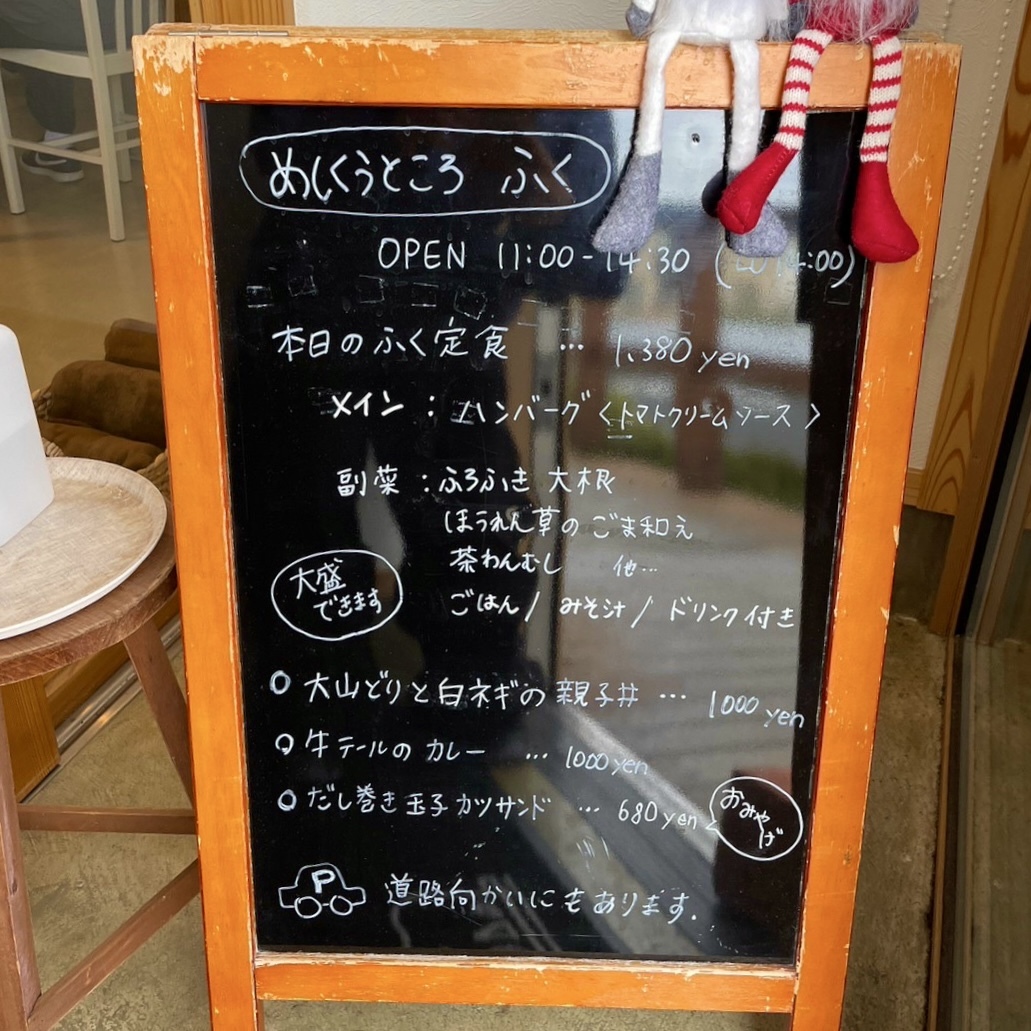 めしくうところ ふく
OPEN 11:00-14:30 (LO 14:00)
本日のふく定食 … 1,380 yen
メイン：ハンバーグ〈トマトクリームソース〉
副菜：ふろふき大根
ほうれん草のごま和え
茶わんむし 他…
大盛
できます
ごはん/みそ汁/ドリンク付き
○大山どりと白ネギの親子丼 … 1000 yen
○牛テールのカレー … 1000 yen
○だし巻き玉子カツサンド … 680 yen
おみやげ
P 道路向かいにもあります.